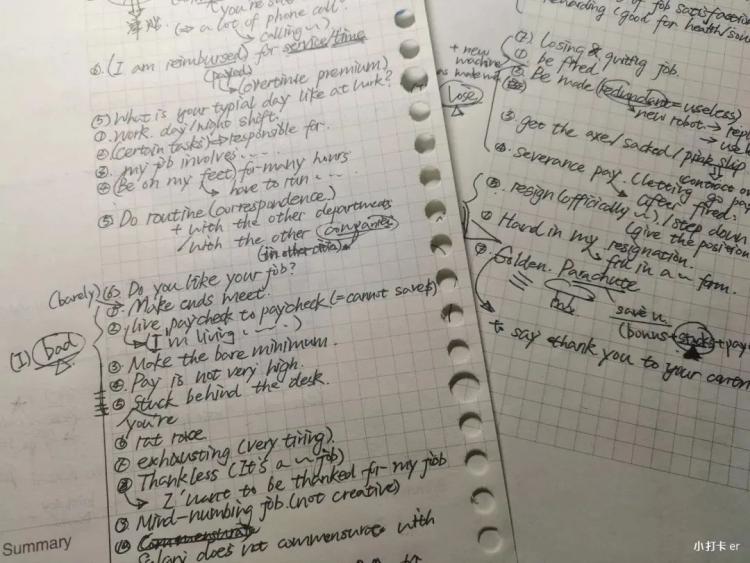 (you're on
(⇒ a lot of phone call.
calling ~)
④. (I am reimbursed) for service/time
(payed)
(overtime premium)
⑤ What is your typial day like at work?
① Work. day/night shift.
② (Certain tasks) → responsible for.
③ my job involves ....
④ (Be on my feet) for many hours
have to run ....
⑤ Do routine (correspondence)
+ with the other department
/with the other (companies)
(in other cities).
(barely) (6) Do you like your job?
(1) bad
① Make ends meet.
② live paycheck to paycheck (= cannot save $)
(I'm living ....)
③ Make the bare minimum.
④ Pay is not very high.
⑤ Stuck behind the desk.
you're
⑥ rat race
⑦ exhausting (very tiring).
⑧ Thankless (It's a ~ job)
I want to be thanked for my job
⑨ Mind-numbing job. (not creative)
⑩ Commensurate
Salary does not commensurate with
Summary
of job satisfaction
rewarding (good for health/soul
(7) losing & quiting job.
① be fired.
② Be made (redundant = useless)
+ new machine
lose
new robot →
③ get the axe/sacked/pink slip
④. severance pay. (letting go pay
after fired.
⑤. resign (officially ~) /step down
(give the position
⑥ Hand in my resignation.
fill in a ~ form.
⑦ Golden. Parachute
save u
(bonus + stocks + pay
to say thank you to your
小打卡 er